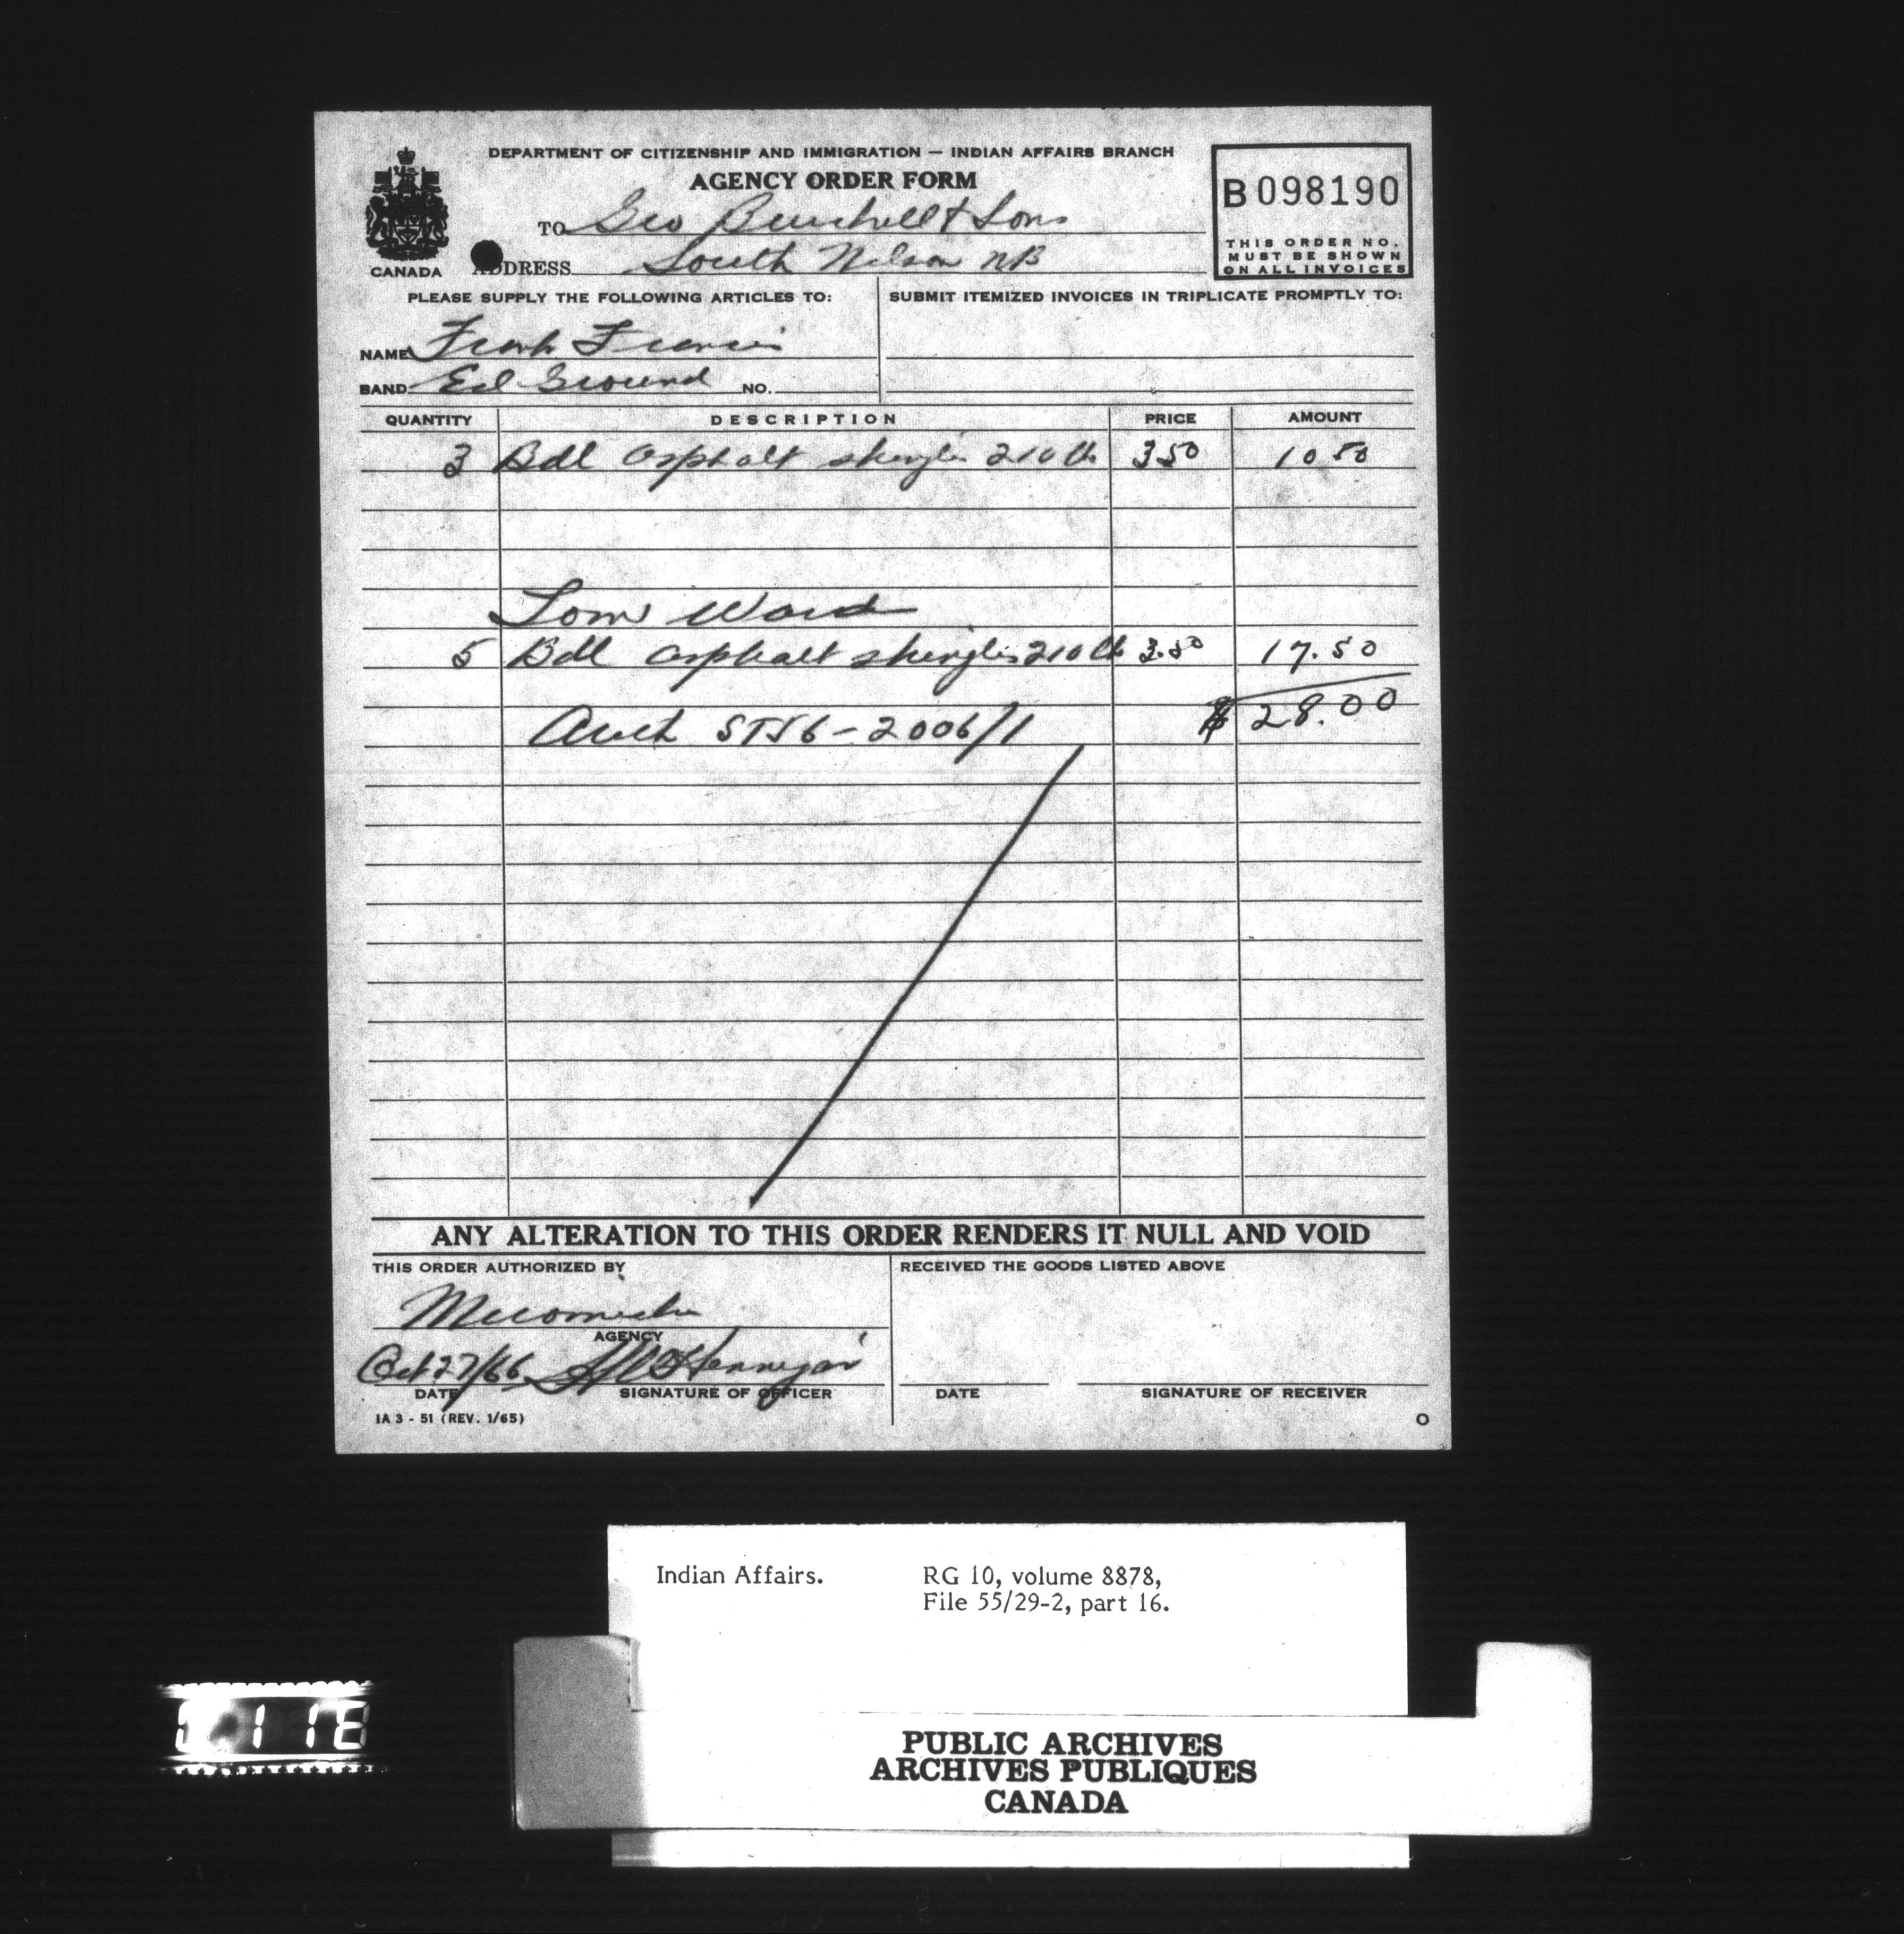 DEPARTMENT OF CITIZENSHIP AND IMMIGRATION — INDIAN AFFAIRS BRANCH
AGENCY ORDER FORM
B098190
THIS ORDER NO.
MUST BE SHOWN
ON ALL INVOICES
CANADA
TO Geo Burchill & Sons
ADDRESS South Nelson NB
PLEASE SUPPLY THE FOLLOWING ARTICLES TO:
SUBMIT ITEMIZED INVOICES IN TRIPLICATE PROMPTLY TO:
NAME Frank Francis
BAND Eel Ground NO.
QUANTITY DESCRIPTION PRICE AMOUNT
3 Bdl asphalt shingles 210 lb 3 50 10 50
Tom Ward
5 Bdl asphalt shingles 210 lb 3.50 17.50
$ 28.00
Auth ST56-2006/1
ANY ALTERATION TO THIS ORDER RENDERS IT NULL AND VOID
THIS ORDER AUTHORIZED BY
RECEIVED THE GOODS LISTED ABOVE
Miramichi
AGENCY
Oct 27/66
DATE SIGNATURE OF OFFICER
DATE SIGNATURE OF RECEIVER
IA 3 - 51 (REV. 1/65)
O
Indian Affairs. RG 10, volume 8878,
File 55/29-2, part 16.
PUBLIC ARCHIVES
ARCHIVES PUBLIQUES
CANADA